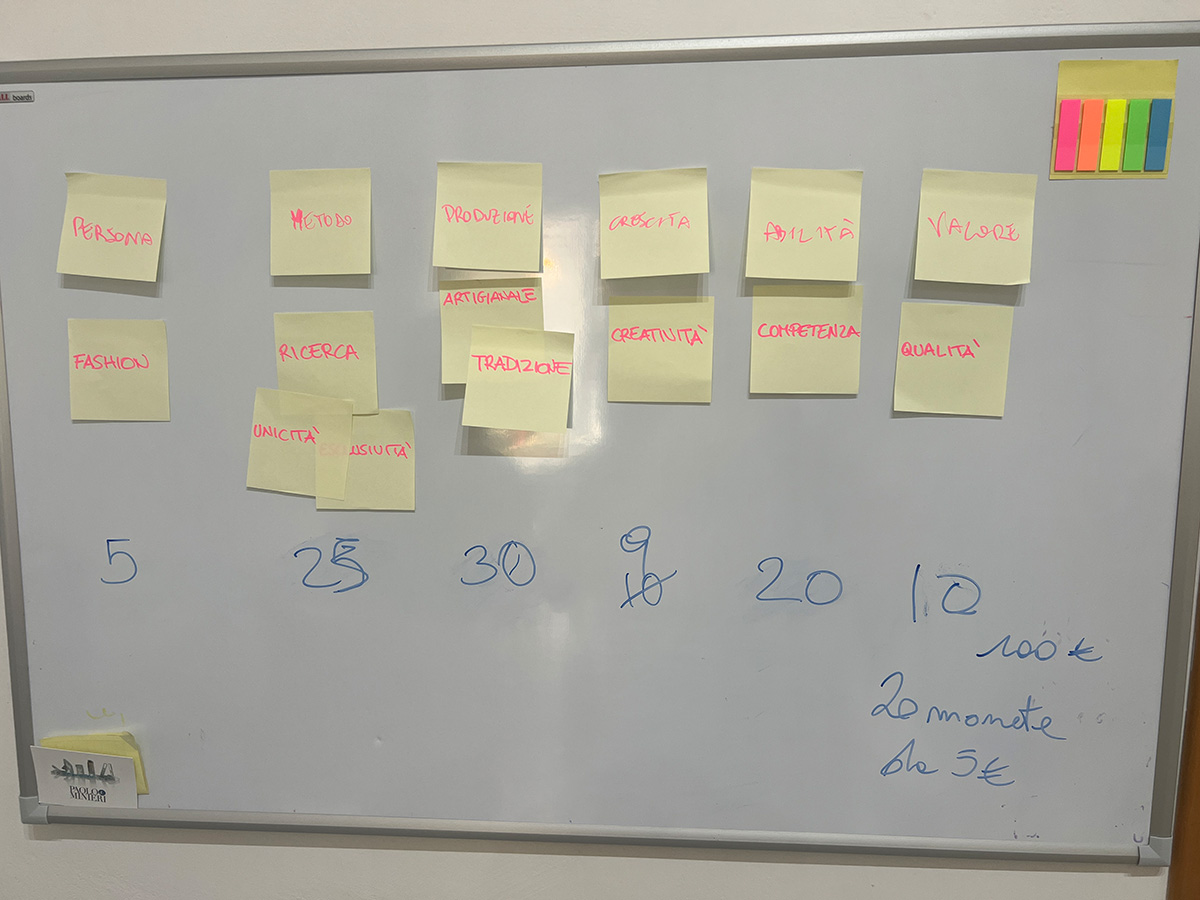 boards
PERSONA
METODO
PRODUZIONE
CRESCITA
ABILITÀ
VALORE
FASHION
RICERCA
UNICITÀ
ESCLUSIVITÀ
ARTIGIANALE
TRADIZIONE
CREATIVITÀ
COMPETENZA
QUALITÀ
5
25
30
9
10
20
10
100 €
20 monete
da 5€
PAOLO
MINIERI